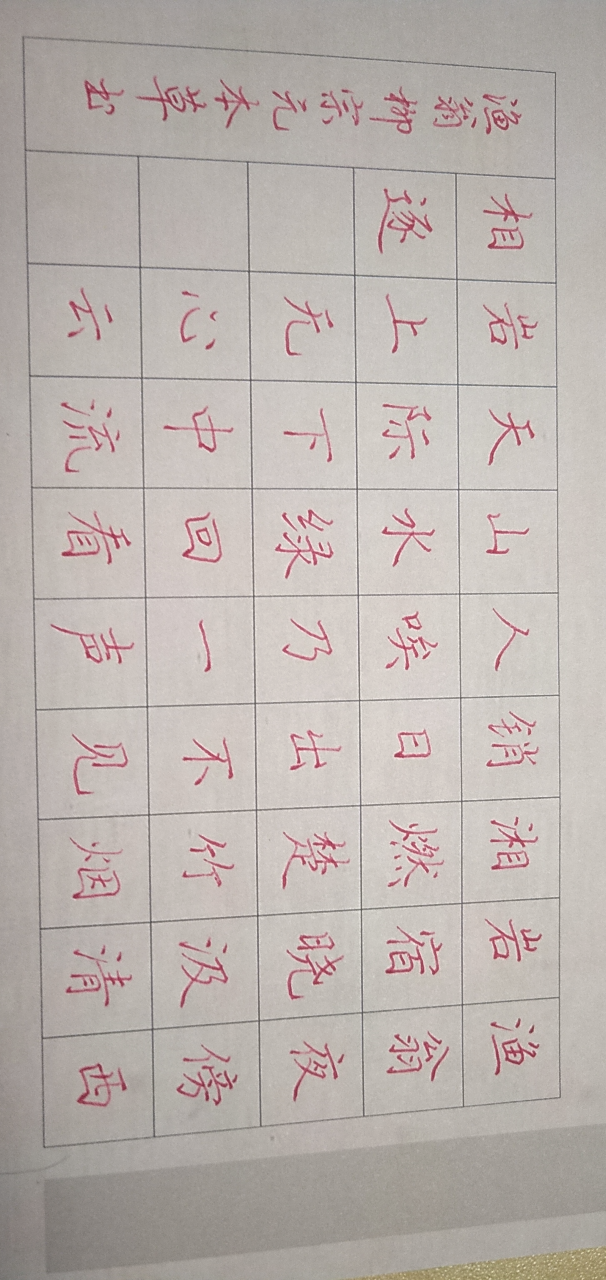 渔翁夜傍西
岩宿晓汲清
湘燃楚竹烟
销日出不见
人唉乃一声
山水绿回看
天际下中流
岩上无心云
相逐
渔翁柳宗元本草书